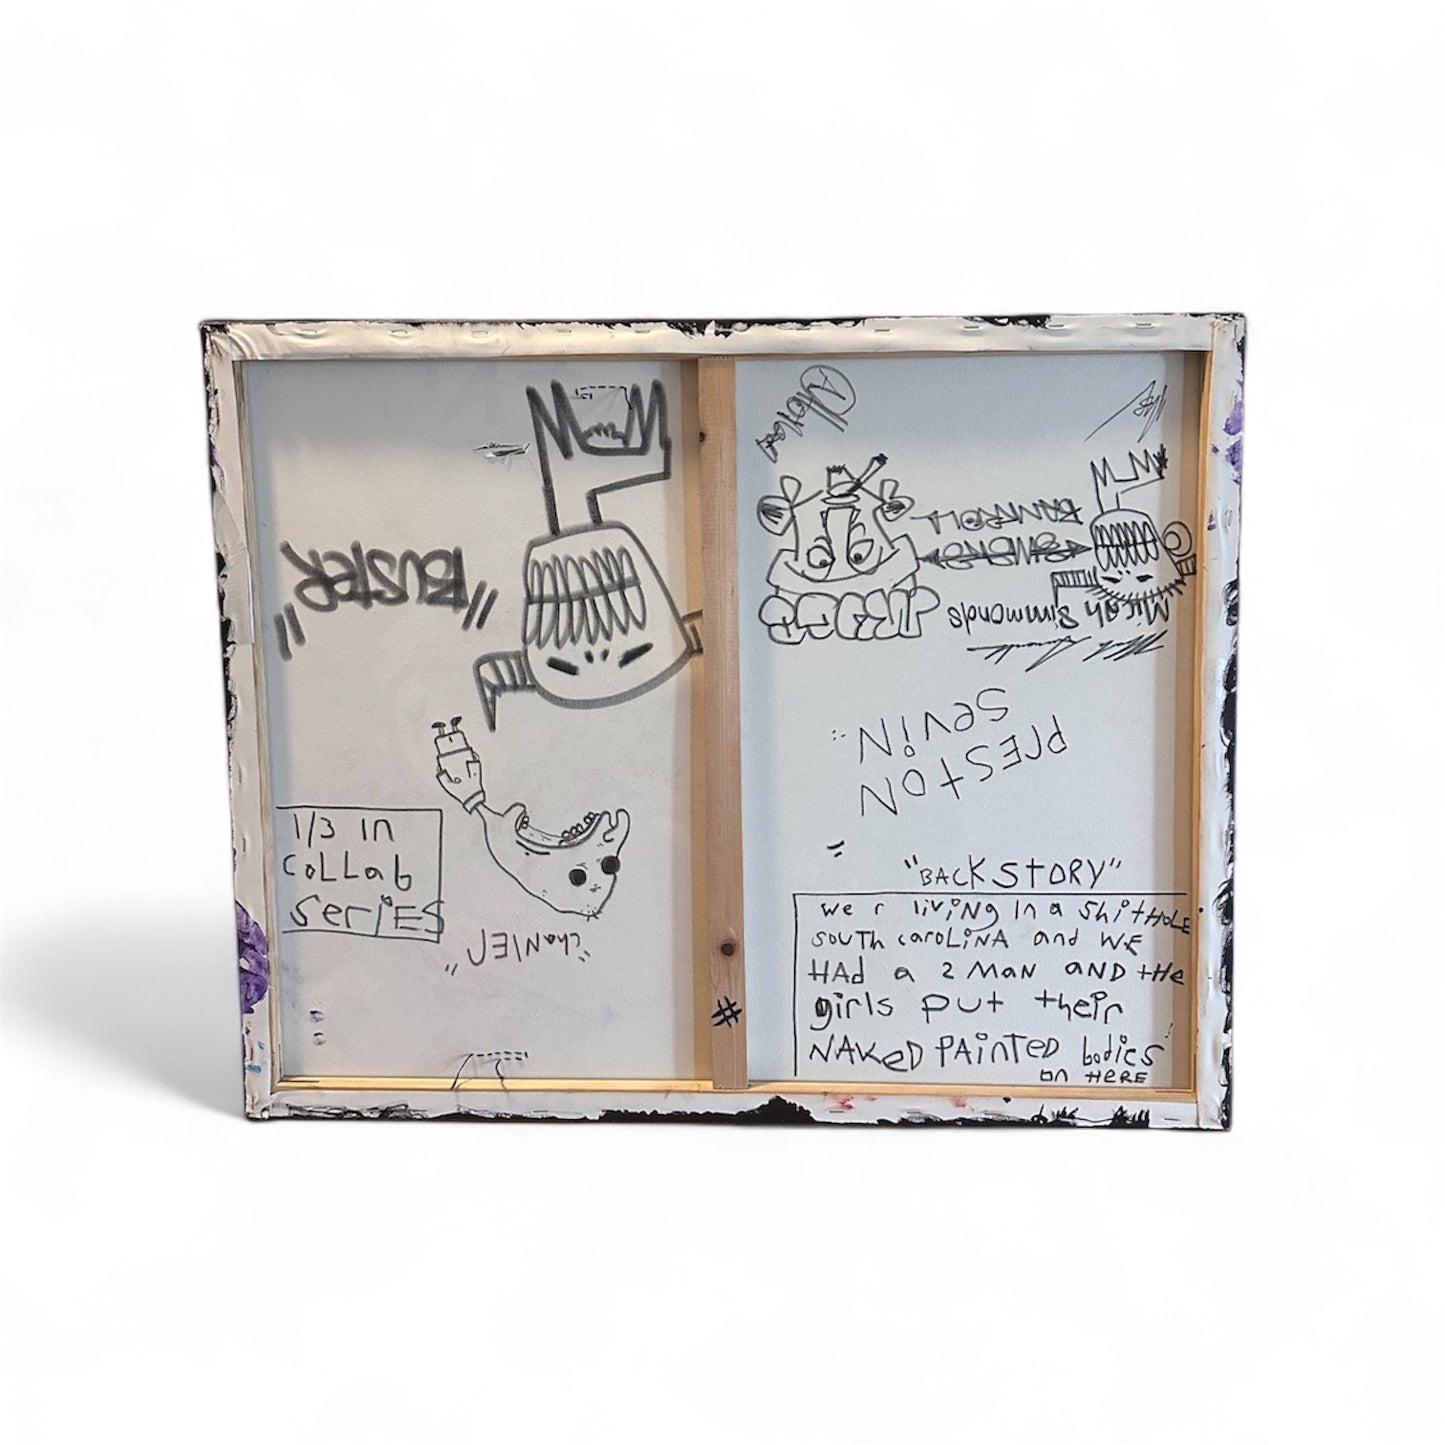 "BUSTER"
1/3 in
coLLab
SeriES
"chaNlEJ"
Micah Simmonds
PrESTON
SEViN
"BACKSTORY"
we r living in a ShitHOLE
SouTh caroLiNA and WE
HAd a 2 MAN AND tHe
girls put their
NAKeD PAiNTED bodies
on HERE
#